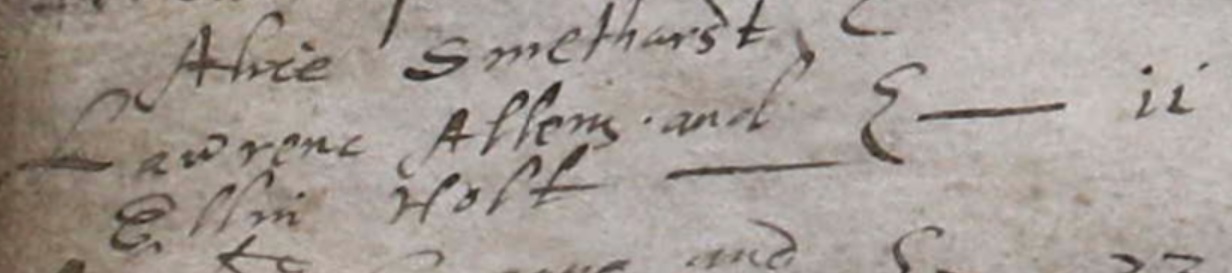 Alice Smetharst
Lawrenc Allens and } — ii
Ellin Holt
and